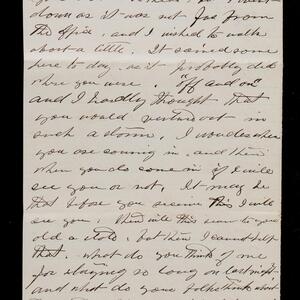 down as it was not far from
the office, and I wished to walk
about a little. It rained some
here to day. as it probably did
where you were. "off and on"
and I hardly thought that
you would venture out in
such a storm. I wonder when
you are coming in. and then
when you do come in if I will
see you or not. It may be
that before you receive this I will
see you. then will this seem to you
old & stale, but then I cannot help
that. What do you think of me
for staying so long on last night
and what do your folks think about